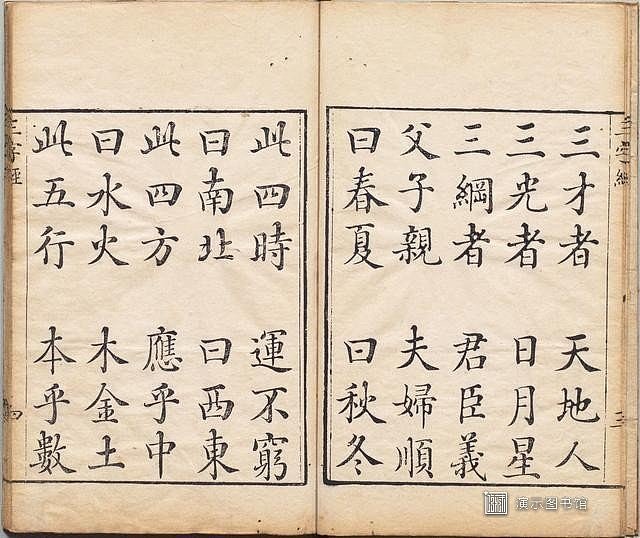 三字經
三才者 天地人
三光者 日月星
三綱者 君臣義
父子親 夫婦順
曰春夏 曰秋冬
三
此四時 運不窮
曰南北 曰西東
此四方 應乎中
曰水火 木金土
此五行 本乎數
三字經
四
演示图书馆